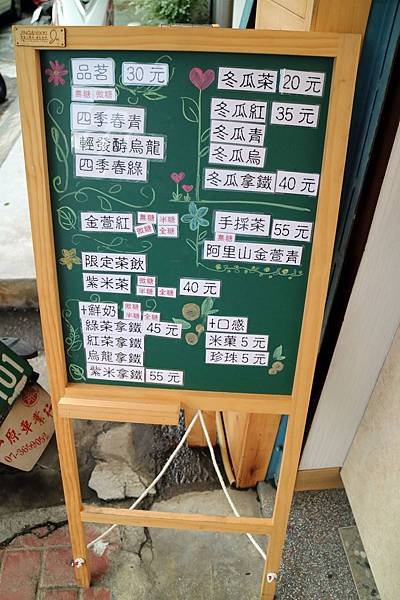 品茗 30元
無糖 微糖
四季春青
輕發酵烏龍
四季春綠
金萱紅 無糖 半糖 微糖 全糖
限定茶飲
紫米茶 微糖 無糖 半糖 全糖 40元
+鮮奶 微糖 無糖 半糖 全糖
綠茶拿鐵 45元
紅茶拿鐵
烏龍拿鐵
紫米拿鐵 55元
冬瓜茶 20元
冬瓜紅 35元
冬瓜青
冬瓜烏
冬瓜拿鐵 40元
手採茶 55元
無糖
阿里山金萱青
+口感
米菓 5元
珍珠 5元
101